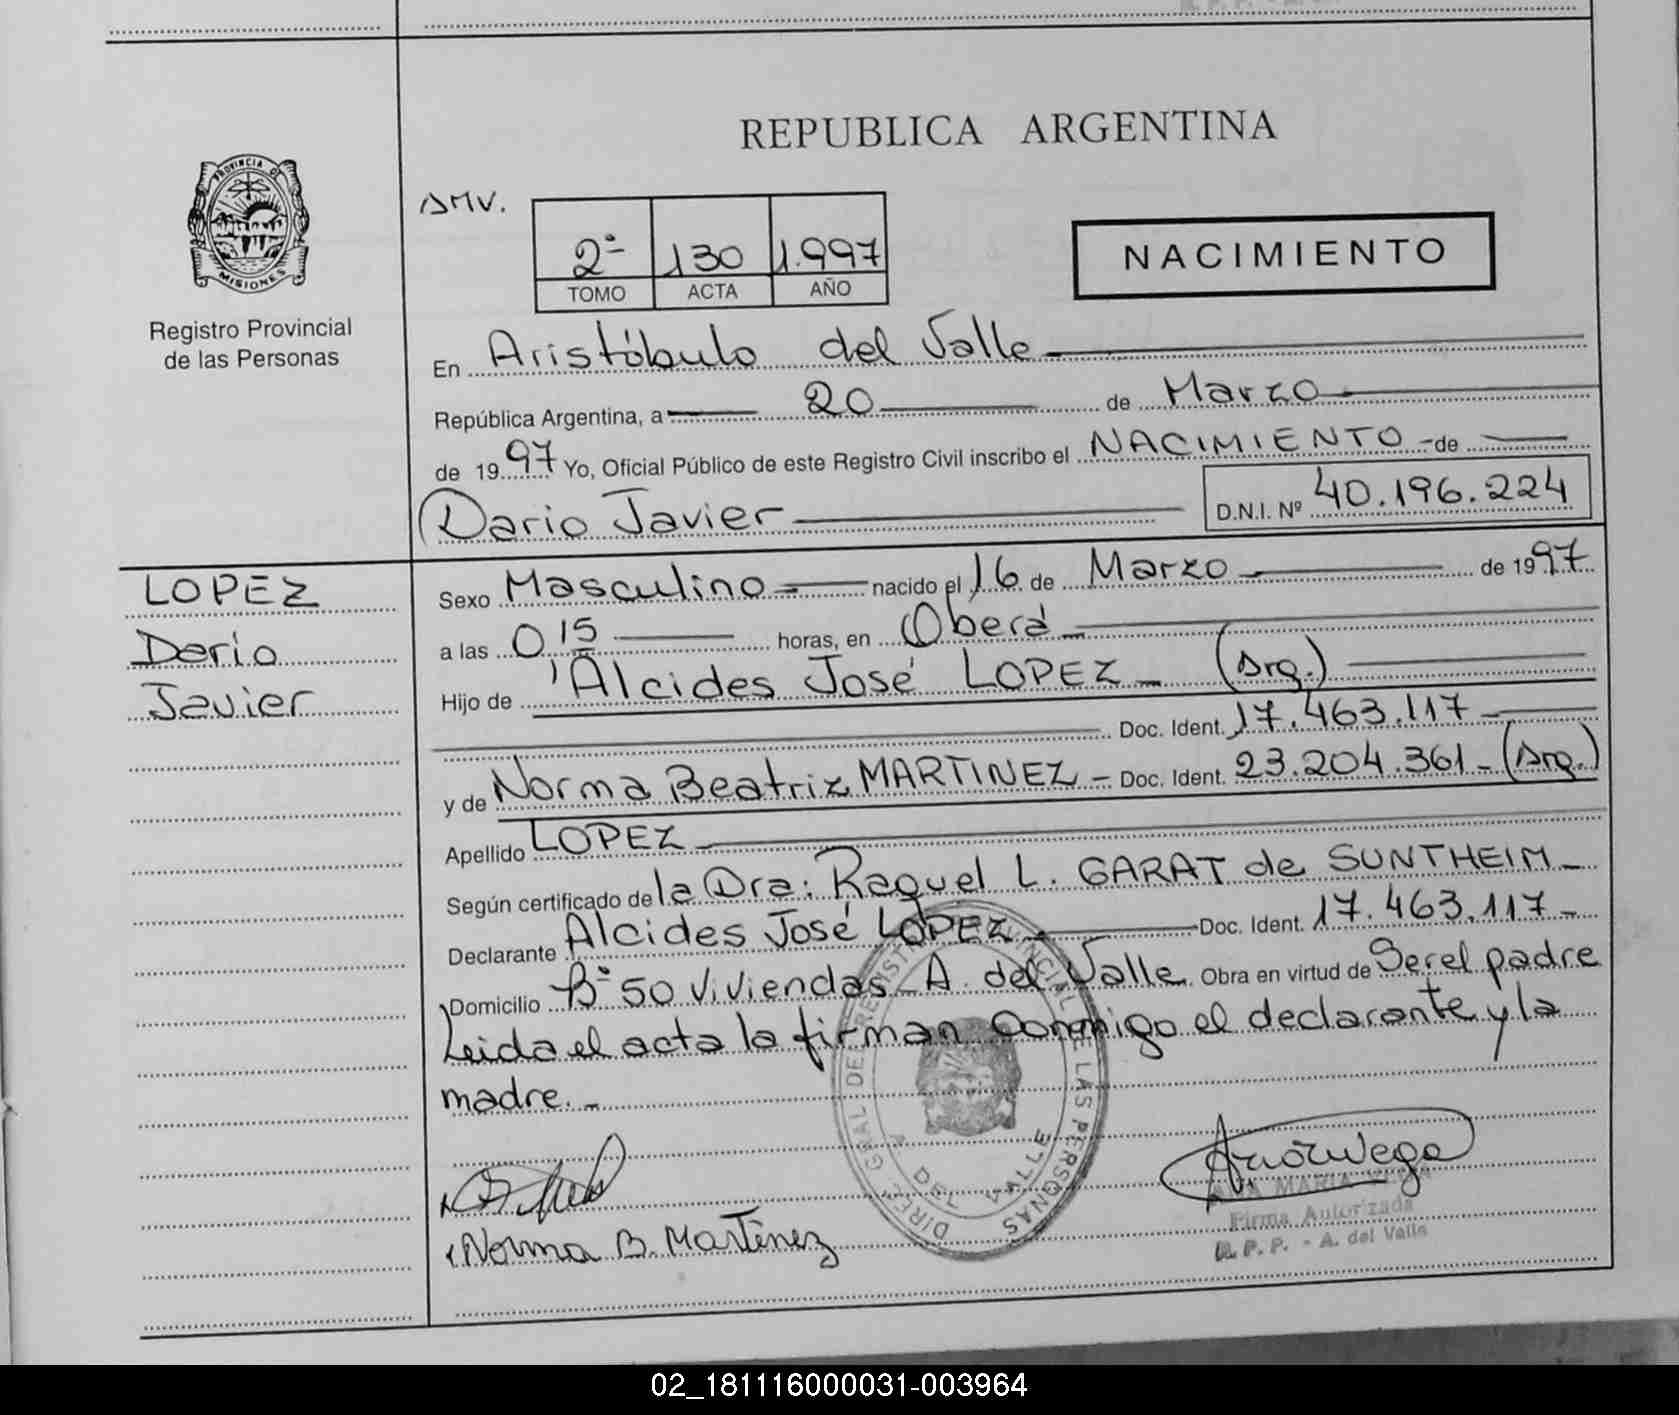 REPUBLICA ARGENTINA
PROVINCIA DE
MISIONES
Registro Provincial
de las Personas
AMV.
2º 130 1.997
TOMO ACTA AÑO
NACIMIENTO
En Aristóbulo del Valle
República Argentina, a 20 de Marzo
de 1997 Yo, Oficial Público de este Registro Civil inscribo el NACIMIENTO - de
Dario Javier D.N.I. Nº 40.196.224
LOPEZ
Dario
Javier
Sexo Masculino nacido el 16 de Marzo de 1997
a las 0 15 horas, en Oberá
Hijo de Alcides José LOPEZ - (Arg.)
Doc. Ident. 17.463.117 -
y de Norma Beatriz MARTINEZ - Doc. Ident. 23.204.361 - (Arg.)
Apellido LOPEZ
Según certificado de la Dra: Raquel L. GARAT de SUNTHEIM -
Declarante Alcides José LOPEZ - Doc. Ident. 17.463.117 -
Domicilio Bº 50 Viviendas - A. del Valle Obra en virtud de Ser el padre
Leida el acta la firman conmigo el declarante y la
madre. -
Norma B. Martínez
ANA MARIA VEGA
Firma Autorizada
R. P. P. - A. del Valle
02_181116000031-003964